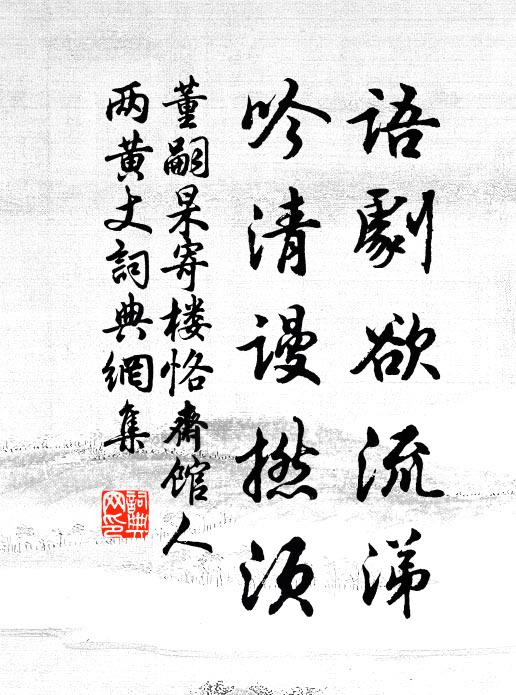 語劇欲流涕
吟清謾撚须
董嗣杲寄楼恪齋馆人
两黄丈詞典網集
詞典网印